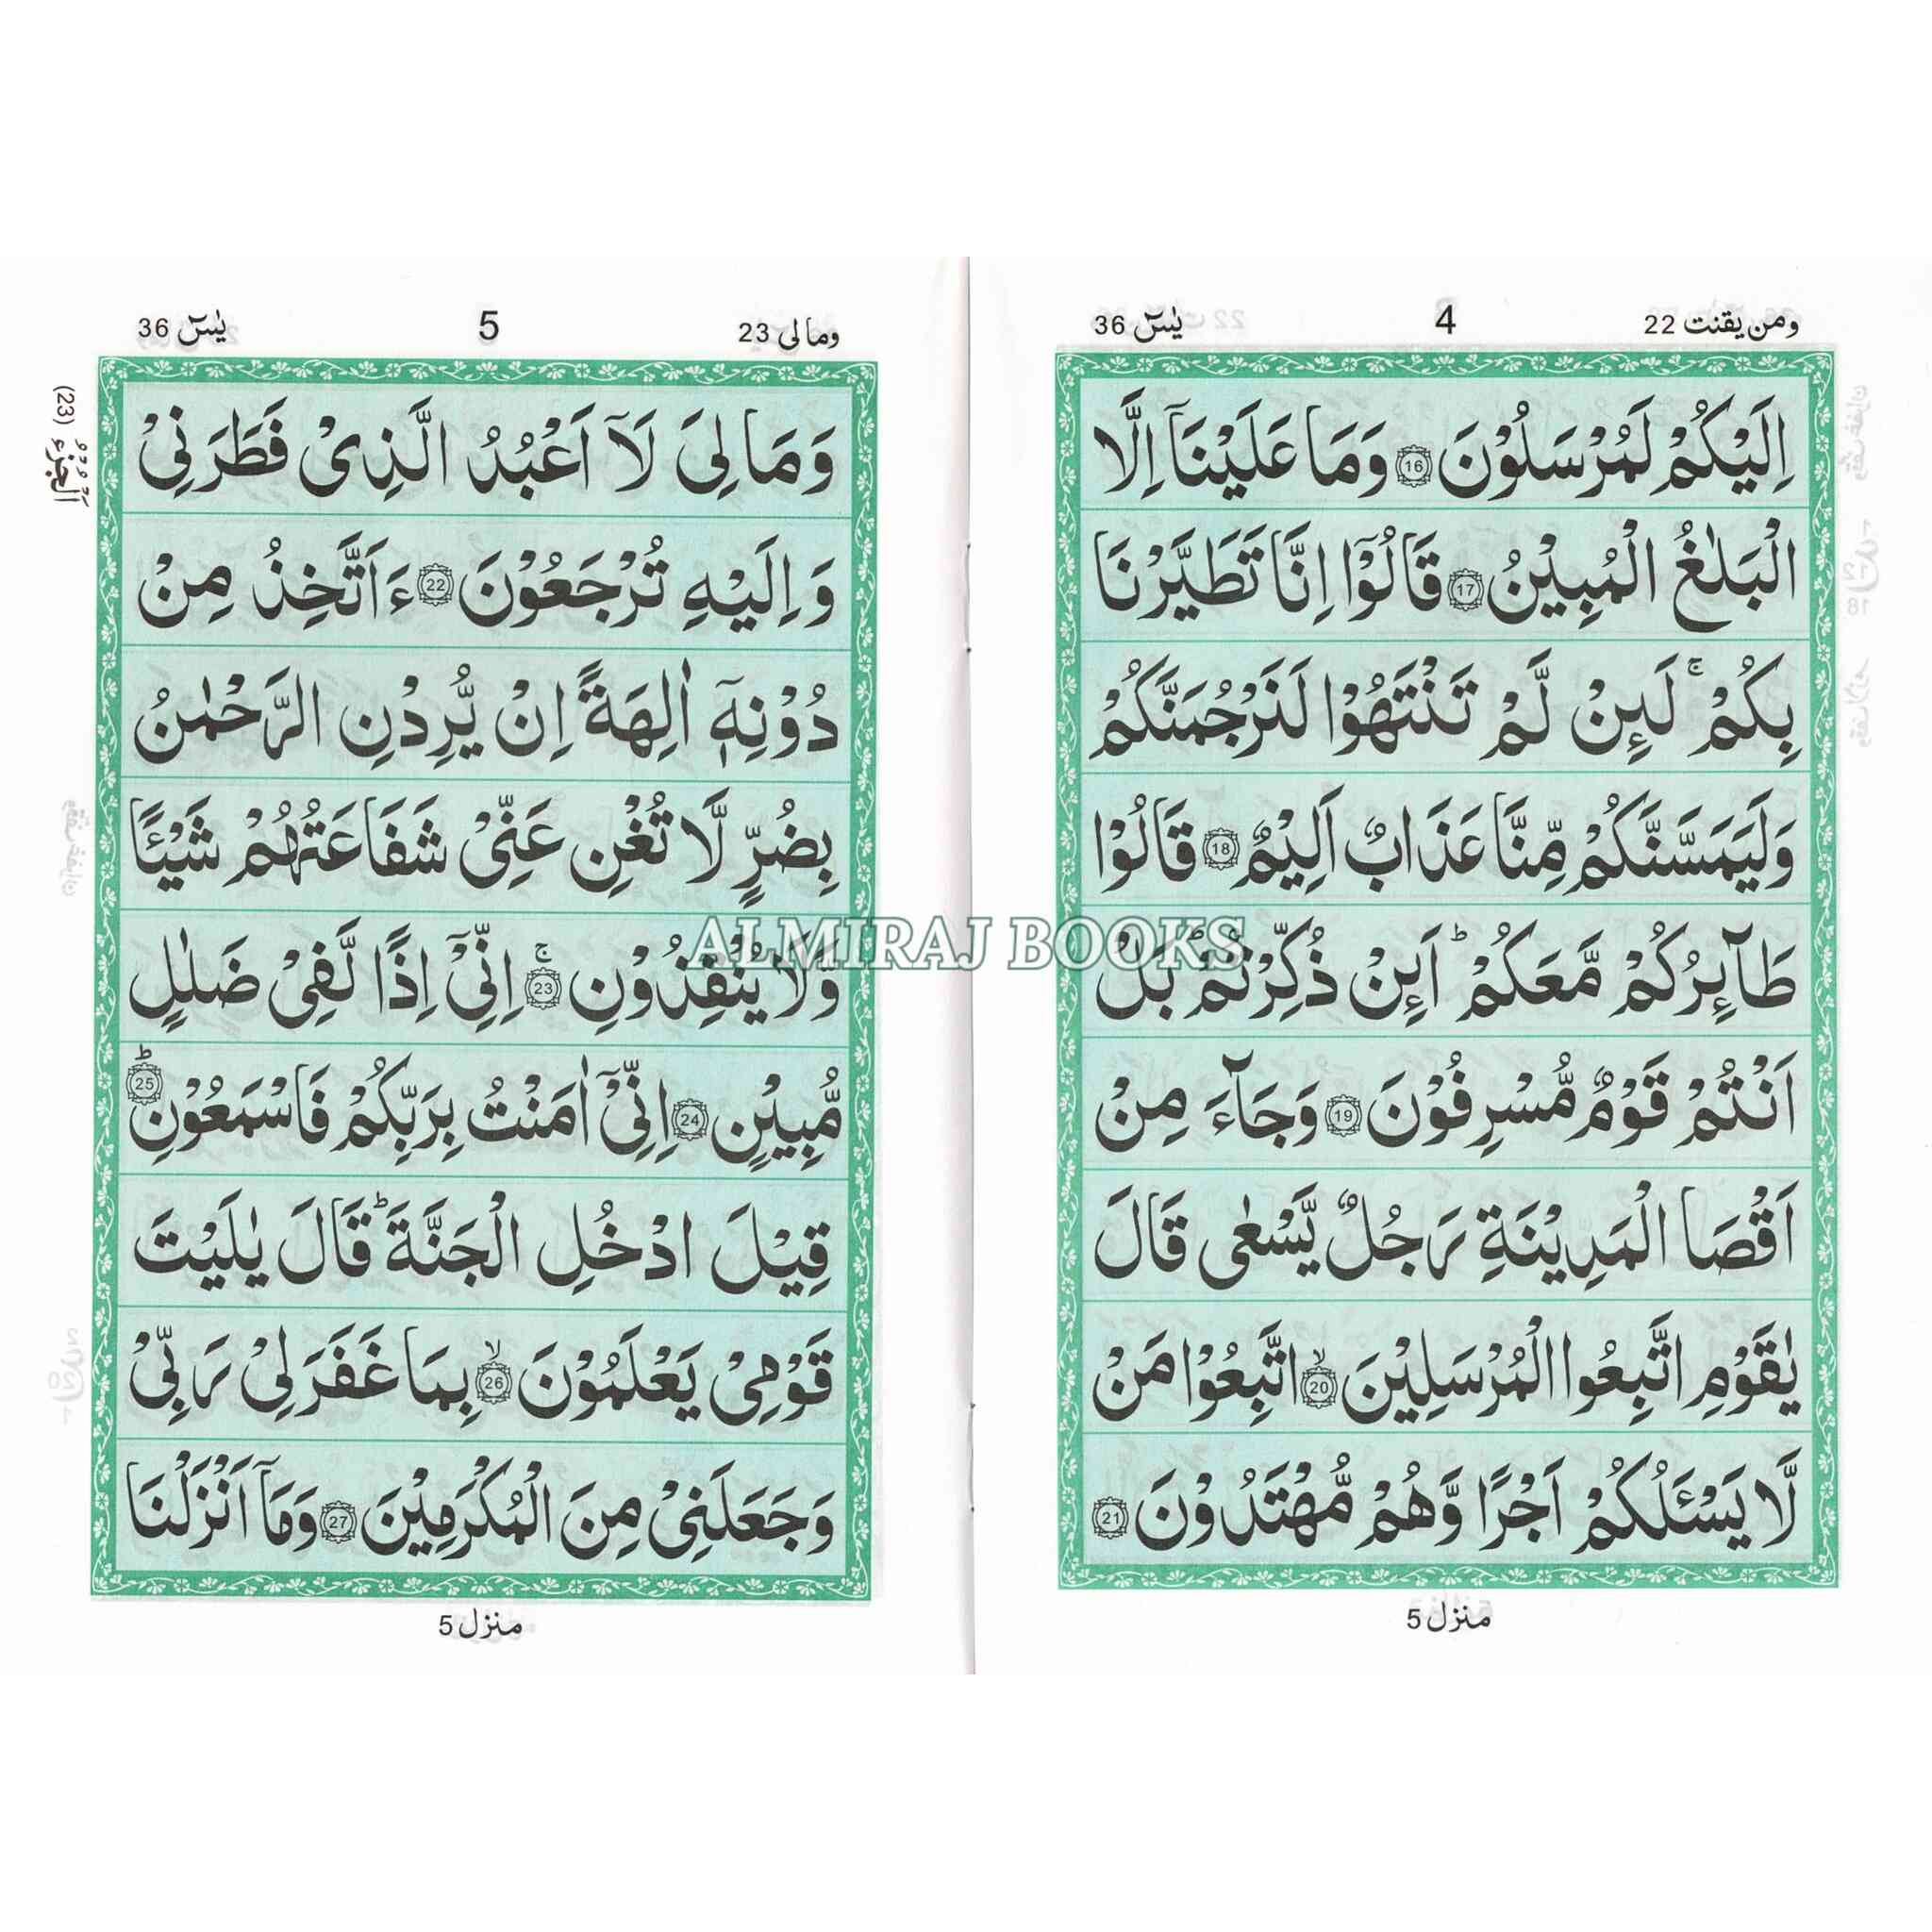 ومن يقنت 22
4
يٰسٓ 36
اِلَيْكُمْ لَمُرْسَلُوْنَ 16 وَمَا عَلَيْنَاۤ اِلَّا
الْبَلٰغُ الْمُبِيْنُ 17 قَالُوْۤا اِنَّا تَطَيَّرْنَا
بِكُمْ ۚ لَئِنْ لَّمْ تَنْتَهُوْا لَنَرْجُمَنَّكُمْ
وَلَيَمَسَّنَّكُمْ مِّنَّا عَذَابٌ اَلِيْمٌ 18 قَالُوْا
طَآئِرُكُمْ مَّعَكُمْ ؕ اَئِنْ ذُكِّرْتُمْ ؕ بَلْ
اَنْتُمْ قَوْمٌ مُّسْرِفُوْنَ 19 وَجَآءَ مِنْ
اَقْصَا الْمَدِيْنَةِ رَجُلٌ يَّسْعٰى قَالَ
يٰقَوْمِ اتَّبِعُوا الْمُرْسَلِيْنَ ۙ 20 اتَّبِعُوْا مَنْ
لَّا يَسْـَٔلُكُمْ اَجْرًا وَّهُمْ مُّهْتَدُوْنَ 21
منزل 5
ومالی 23
5
يٰسٓ 36
اَلْجُزْءُ (23)
وَمَا لِىَ لَاۤ اَعْبُدُ الَّذِىْ فَطَرَنِىْ
وَاِلَيْهِ تُرْجَعُوْنَ 22 ءَاَتَّخِذُ مِنْ
دُوْنِهٖۤ اٰلِهَةً اِنْ يُّرِدْنِ الرَّحْمٰنُ
بِضُرٍّ لَّا تُغْنِ عَنِّىْ شَفَاعَتُهُمْ شَيْـًٔا
وَّلَا يُنْقِذُوْنِ ۚ 23 اِنِّىْۤ اِذًا لَّفِىْ ضَلٰلٍ
مُّبِيْنٍ 24 اِنِّىْۤ اٰمَنْتُ بِرَبِّكُمْ فَاسْمَعُوْنِ ؕ 25
قِيْلَ ادْخُلِ الْجَنَّةَ ؕ قَالَ يٰلَيْتَ
قَوْمِىْ يَعْلَمُوْنَ ۙ 26 بِمَا غَفَرَ لِىْ رَبِّىْ
وَجَعَلَنِىْ مِنَ الْمُكْرَمِيْنَ 27 وَمَاۤ اَنْزَلْنَا
منزل 5
ALMIRAJ BOOKS